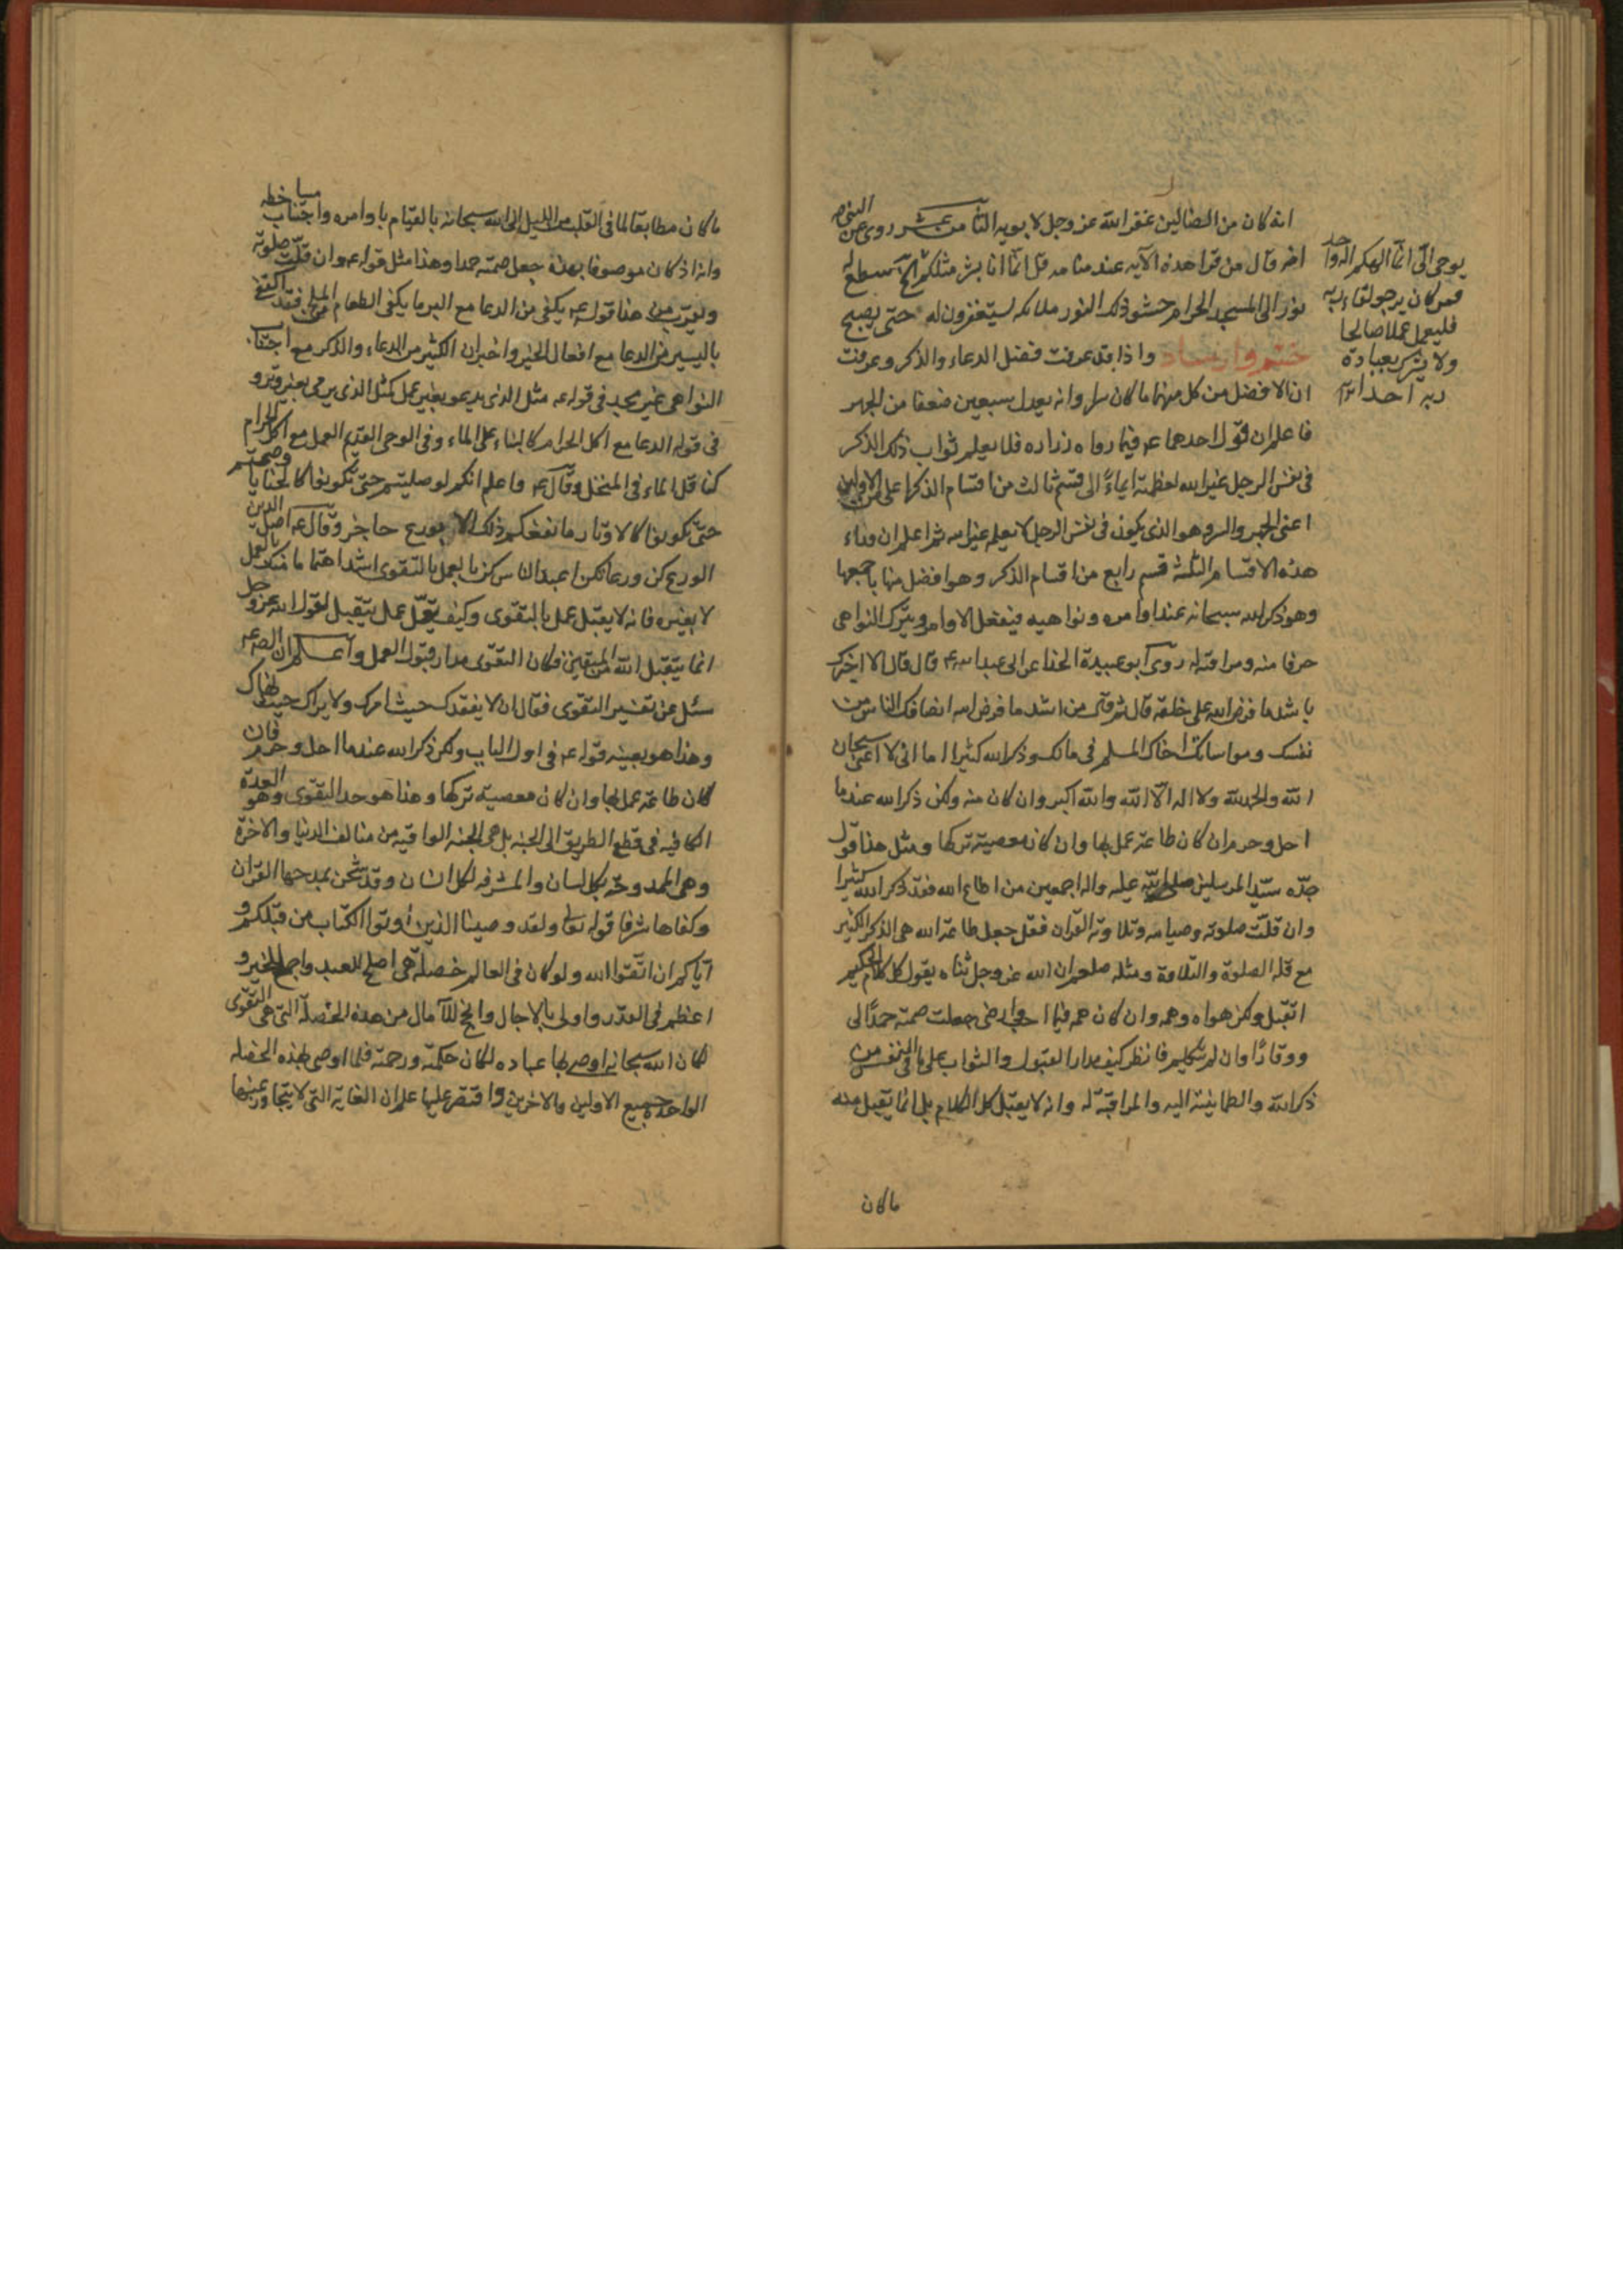 انه كان من الضالين غفر الله عز وجل لابويه الثامن عشر روى عن النبى ص
انه قال من قرا هذه الآيه عند منامه قل انما انا بشر مثلكم الخ سطع له
نور الى المسجد الحرام حشو ذلك النور ملائكه يستغفرون له حتى يصبح
ختم وارشاد واذا قد عرفت فضل الدعاء والذكر وعرفت
ان الافضل من كل منهما ما كان سرا وانه يعدل سبعين ضعفا من الجهر
فاعلم ان قول احدهما ع فيما رواه زراره فلا يعلم ثواب ذلك الذكر
فى نفس الرجل غير الله لعظمته ايماءً الى قسم ثالث من اقسام الذكر اعلى من الاولين
اعنى الجهر والسر وهو الذى يكون فى نفس الرجل لا يعلمه غير الله ثم اعلم ان وراء
هذه الاقسام الثلثة قسم رابع من اقسام الذكر وهو افضل منها باجمعها
وهو ذكر الله سبحانه عند اوامره ونواهيه فيفعل الاوامر ويترك النواهى
خوفا منه ومراقبة له روى ابو عبيدة الحذاء عن ابى عبد الله ع قال قال الا اخبرك
باشد ما فرض الله على خلقه قال ثم قال من اشد ما فرض الله انصافك الناس من
نفسك ومواساتك اخاك المسلم فى مالك وذكر الله كثيرا اما انى لا اعنى سبحان
الله والحمد لله ولا اله الا الله والله اكبر وان كان منه ولكن ذكر الله عند ما
احل وحرم ان كان طاعة عمل بها وان كان معصية تركها ومثل هذا قول
جده سيد المرسلين صلى الله عليه واله اجمعين من اطاع الله فقد ذكر الله كثيرا
وان قلت صلوته وصيامه وتلاوته القران فقد جعل طاعة الله هى الذكر الكثير
مع قلة الصلوة والتلاوة ومثله صلعم ان الله عز وجل ثناه يقول لا كل كلام الحكيم
اتقبل ولكن هواه وهمه وان كان همه فيما احب وارضى جعلت صمته حمدًا لى
ووقارًا وان لم يتكلم فانظر كيف مدار القبول والثواب على ما فى النفس من
ذكر الله والطمانينة اليه والمراقبة له وانه لا يقبل كل الكلام بل انما يقبل منه
ما كان
يوحى الىّ انما الهكم اله واحد
فمن كان يرجو لقاء ربه
فليعمل عملا صالحا
ولا يشرك بعبادة
ربه احدا
ما كان مطابقا لما فى القلب من الميل الى الله سبحانه بالقيام باوامره واجتناب مساخطه
وانه اذ كان موصوفا بهذه جعل صمته حمدا وهذا مثل قوله ع وان قلت صلوته
ويقرب من هذا قوله ع يكفى من الدعا مع البر ما يكفى الطعام من الملح فقد اكتفى
باليسير من الدعا مع افعال الخير واخبر ان الكثير من الدعاء والذكر مع اجتناب
النواهى غير مجد فى قوله ع مثل الذى يدعو بغير عمل كمثل الذى يرمى بغير وتر و
فى قوله الدعا مع اكل الحرام كالبناء على الماء وفى الوحى القديم العمل مع اكل الحرام
كناقل الماء فى المنخل وقال ع واعلم انكم لو صليتم حتى تكونوا كالحنايا وصمتم
حتى تكونوا كالاوتار ما نفعكم ذلك الا بورع حاجز وقال ع اصل الدين
الورع كن ورعا تكن اعبد الناس كن بالعمل بالتقوى اشد اهتماما منك بالعمل
لا بغيره فانه لا يقبل عمل بالتقوى وكيف يقل عمل يتقبل لقول الله عز وجل
انما يتقبل الله من المتقين فكان التقوى مدار قبول العمل واعلم ان الص ع
سئل عن تفسير التقوى فقال ان لا يفقدك حيث امرك ولا يراك حيث نهاك
وهذا هو بعينه قوله ع فى اول الباب ولكن ذكر الله عند ما احل وحرم فان
كان طاعة عمل بها وان كان معصية تركها وهذا هو حد التقوى وهو العدة
الكافيه فى قطع الطريق الى الجنه بل هى الجنه الواقيه من متالف الدنيا والاخرة
وهى الممدوحة بكل لسان والمشرفه لكل انسان وقد شحن بمدحها القران
وكفاها شرفا قوله تعالى ولقد وصينا الذين اوتوا الكتاب من قبلكم و
اياكم ان اتقوا الله ولو كان فى العالم خصلة هى اصلح للعبد واجمع للخير و
اعظم فى القدر واولى بالاجال وانجح للآمال من هذه الخصلة التى هى التقوى
لكان الله سبحانه اوصى بها عباده لمكان حكمته ورحمته فلما اوصى بهذه الخصله
الواحدة جميع الاولين والاخرين واقتصر عليها علم ان الغاية التى لا يتجاوز عنها